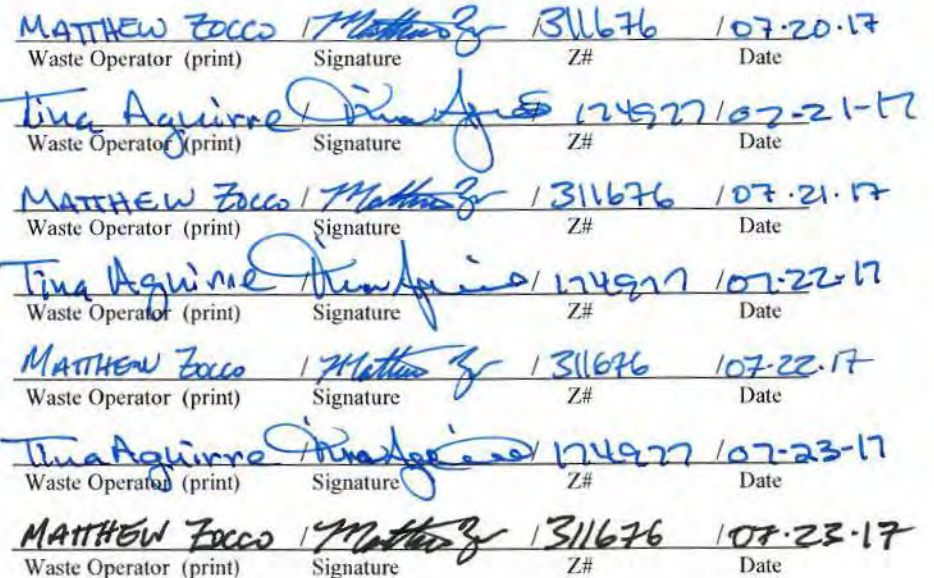 MATTHEW ZOCCO / Matthew Z / 311676 / 07.20.17
Waste Operator (print) Signature Z# Date
Tina Aguirre / Tina Aguirre 174977 / 07-21-17
Waste Operator (print) Signature Z# Date
MATTHEW ZOCCO / Matthew Z / 311676 / 07.21.17
Waste Operator (print) Signature Z# Date
Tina Aguirre / Tina Aguirre / 174977 / 07-22-17
Waste Operator (print) Signature Z# Date
MATTHEW ZOCCO / Matthew Z / 311676 / 07.22.17
Waste Operator (print) Signature Z# Date
Tina Aguirre / Tina Aguirre / 174977 / 07-23-17
Waste Operator (print) Signature Z# Date
MATTHEW ZOCCO / Matthew Z / 311676 / 07.23.17
Waste Operator (print) Signature Z# Date